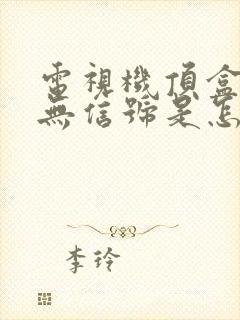 電視機頂盒
無信號是怎
李玲